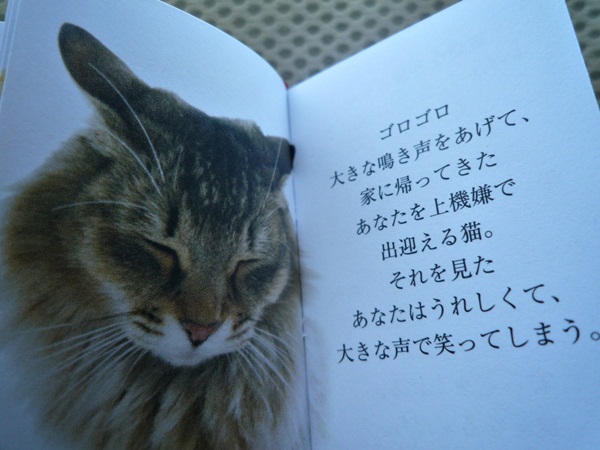 ゴロゴロ
大きな鳴き声をあげて、
家に帰ってきた
あなたを上機嫌で
出迎える猫。
それを見た
あなたはうれしくて、
大きな声で笑ってしまう。